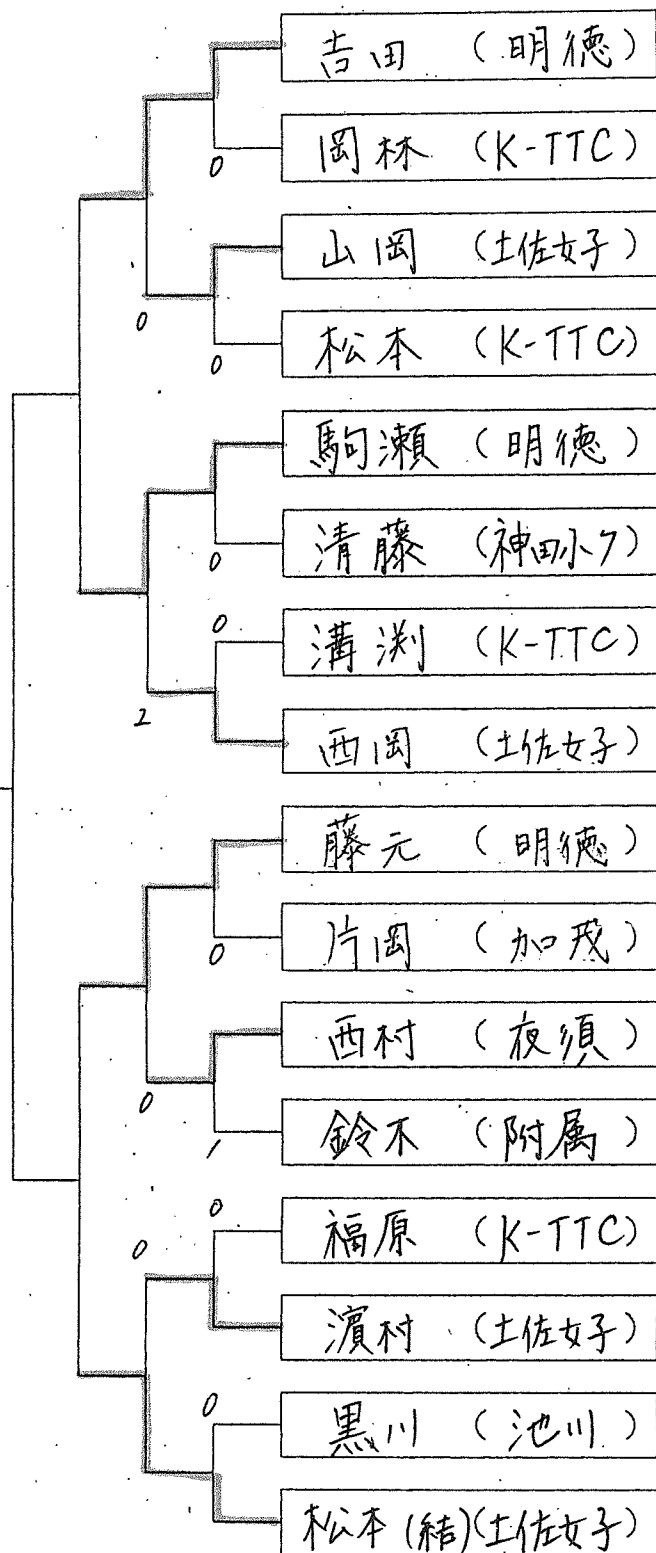 吉田 (明徳)
岡林 (K-TTC)
0
山岡 (土佐女子)
0
松本 (K-TTC)
0
駒瀬 (明徳)
清藤 (神田小ク)
0
0
溝渕 (K-TTC)
2
西岡 (土佐女子)
藤元 (明徳)
片岡 (加茂)
0
西村 (夜須)
0
鈴木 (附属)
1
0
福原 (K-TTC)
0
濵村 (土佐女子)
0
黒川 (池川)
松本(結)(土佐女子)